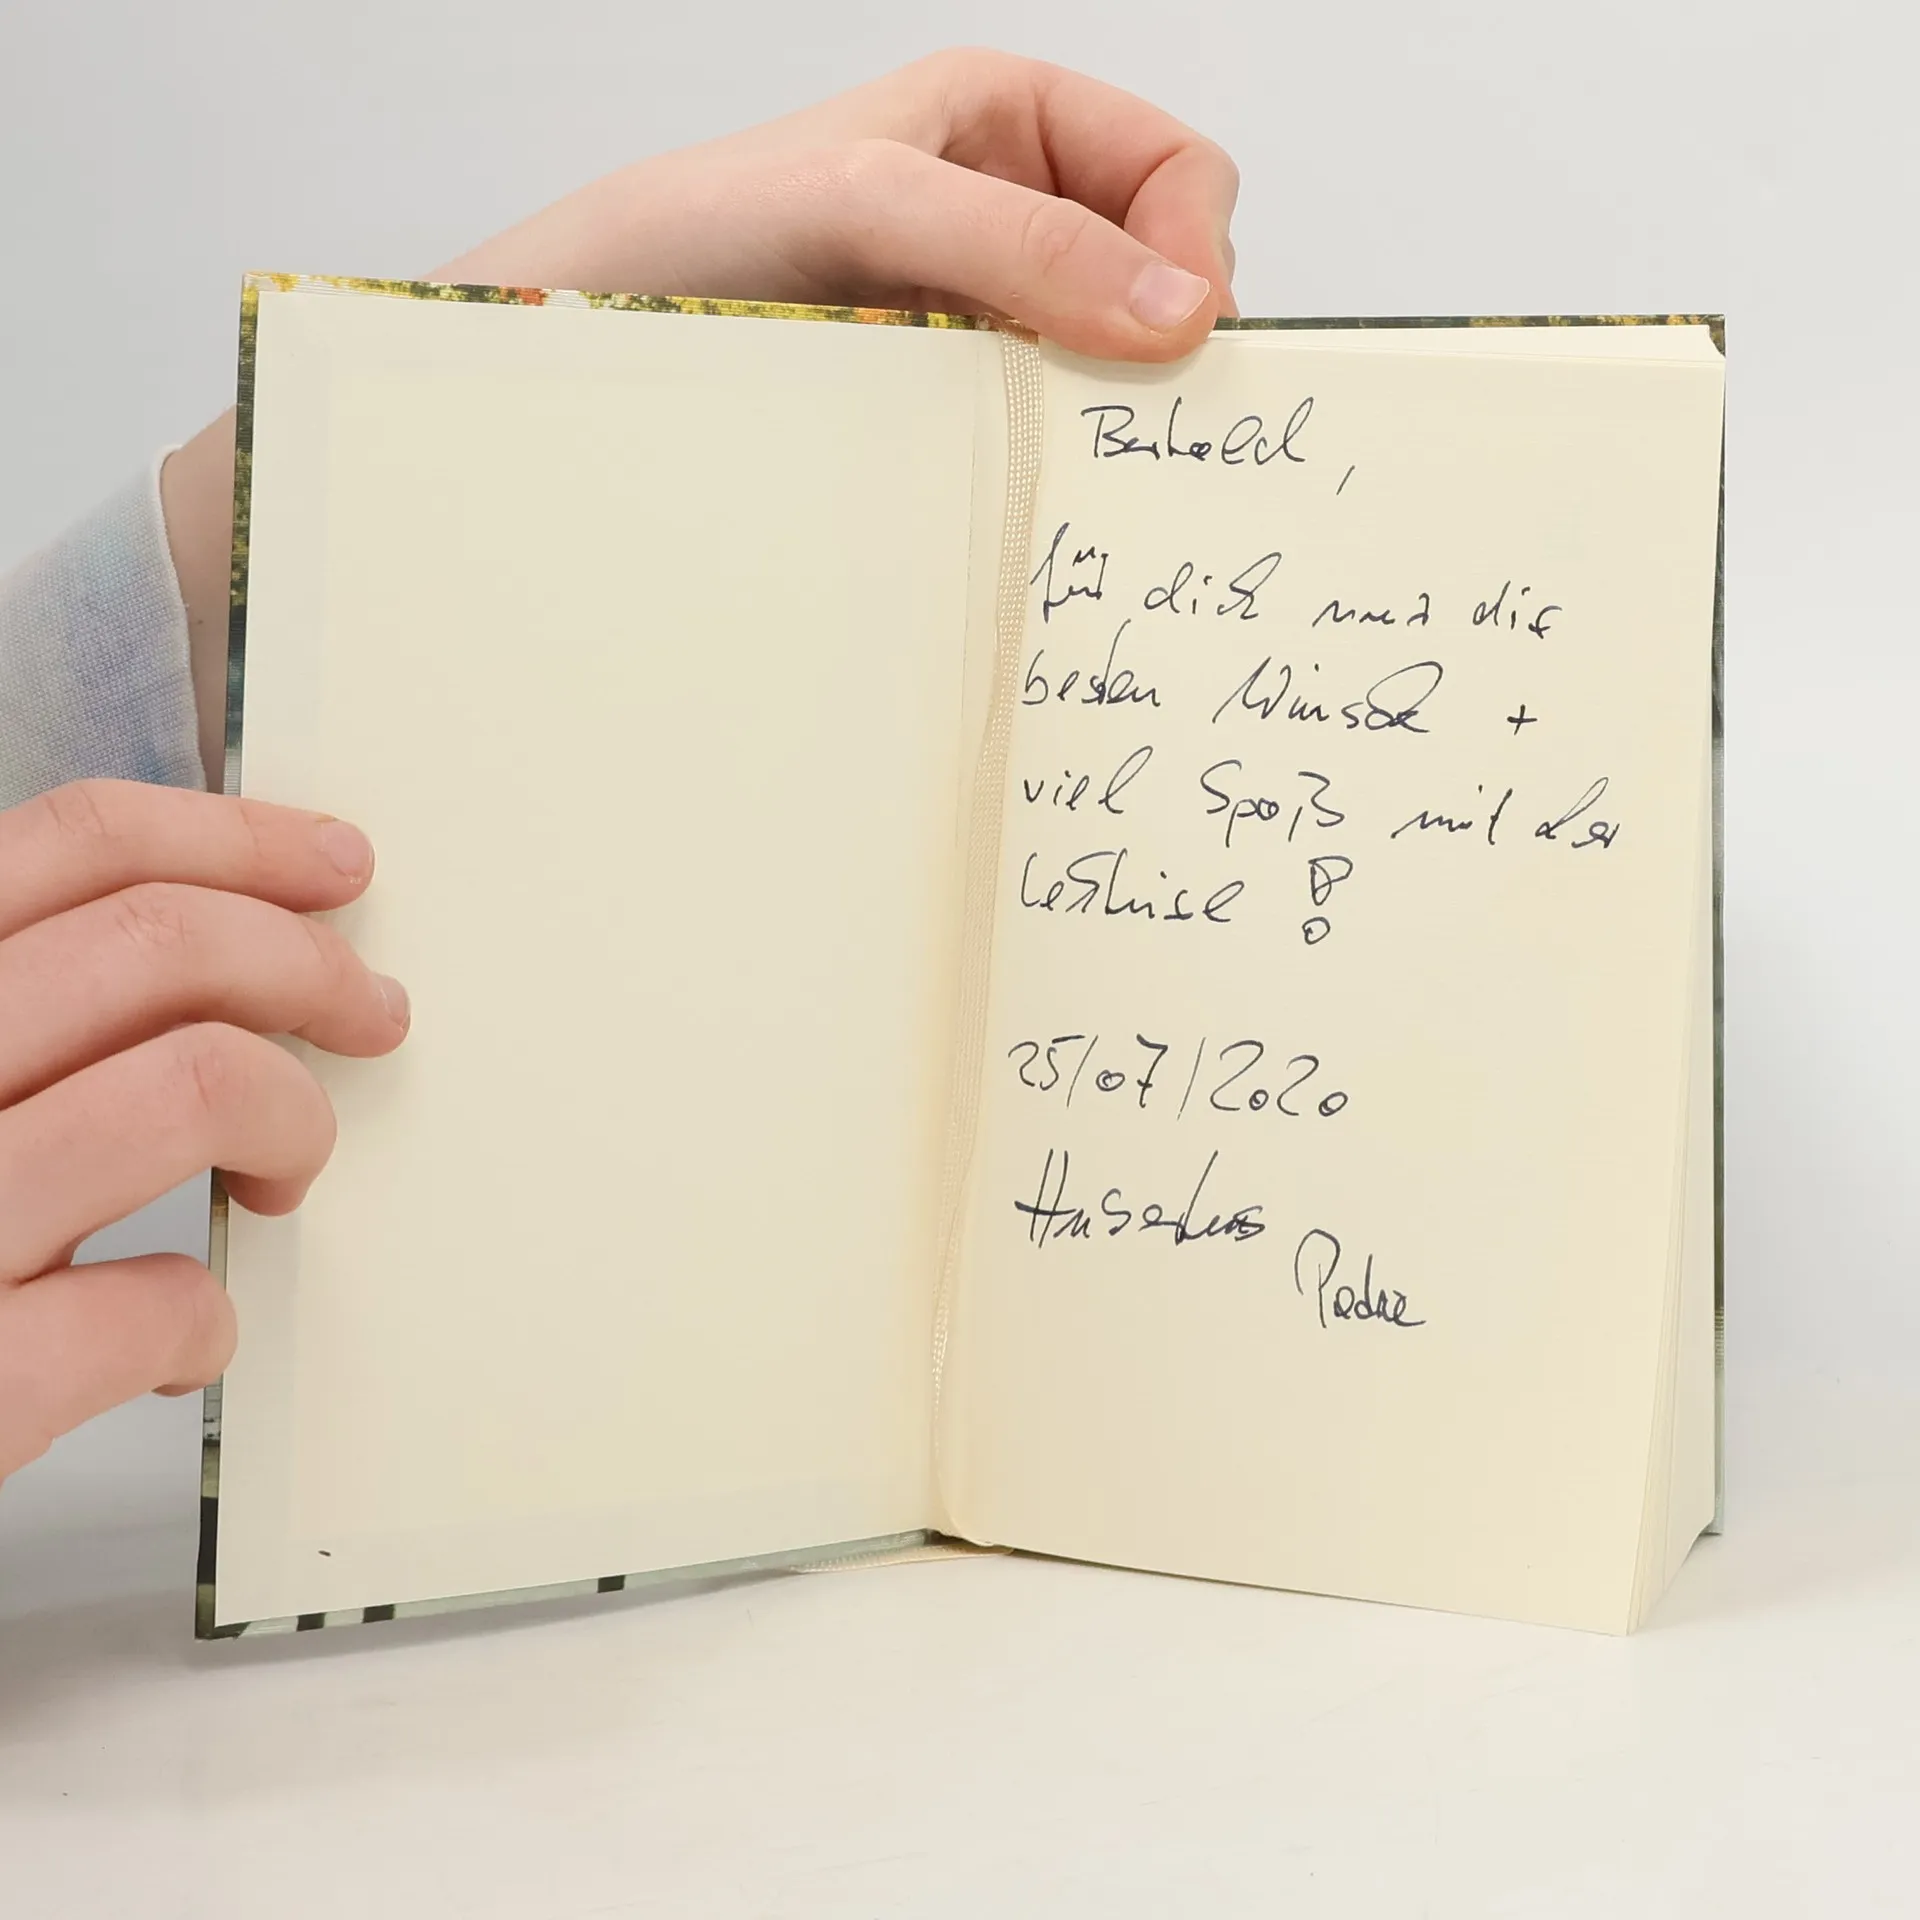 Berthold,
für dich nur die
besten Wünsche +
viel Spaß mit der
25/07/2020
Pedro